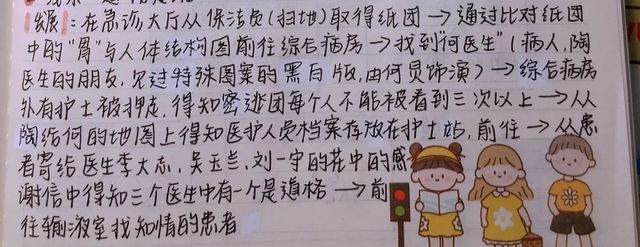 发展】：在急诊大厅从保洁员(扫地)取得纸团→通过比对纸团
中的"胃"与人体结构图前往综合病房→找到"何医生"(病人,陶
医生的朋友,见过特殊图案的黑白版,由何员饰演)→综合病房
外有护士被押走,得知密逃团每个人不能被看到三次以上→从
陶给何的地图上得知医护人员档案存放在护士站,前往→从患
者寄给医生李大志、吴玉兰、刘一宇的花中的感
谢信中得知三个医生中有一个是追格→前
往输液室找知情的患者